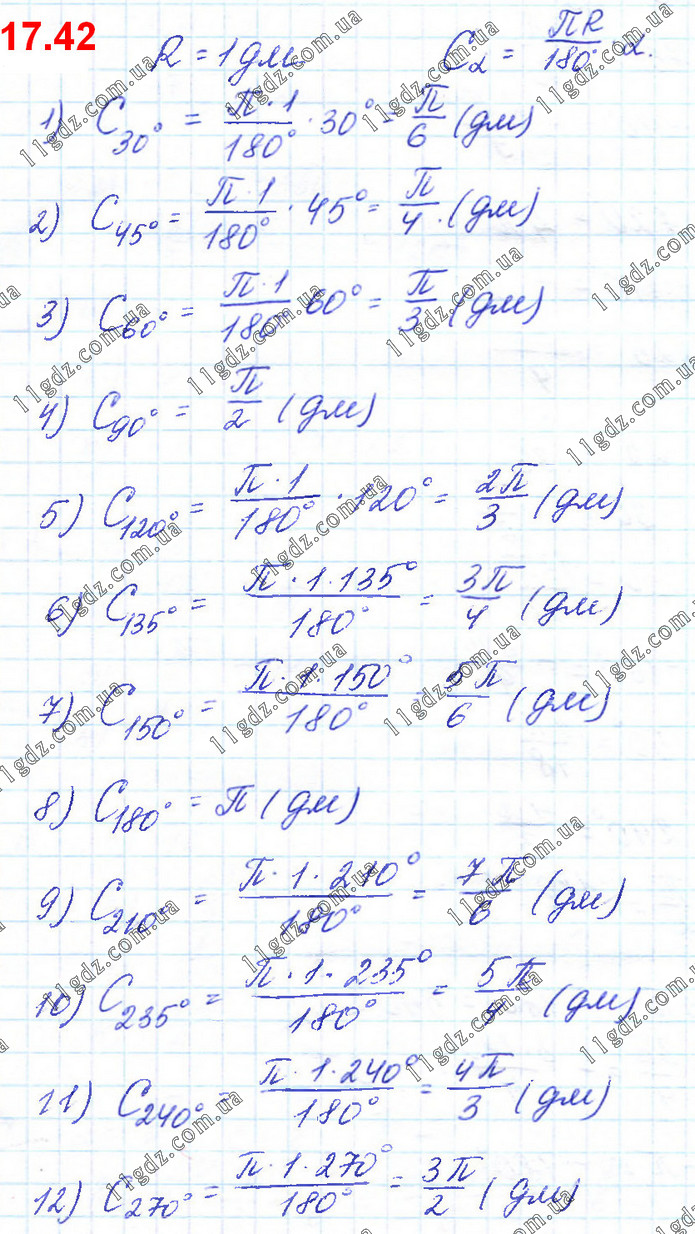 17.42
R = 1 дм. C₂ = ПR/180° · α.
1) C₃₀° = П·1/180° · 30° = П/6 (дм)
2) C₄₅° = П·1/180° · 45° = П/4 (дм)
3) C₆₀° = П·1/180° · 60° = П/3 (дм)
4) C₉₀° = П/2 (дм)
5) C₁₂₀° = П·1/180° · 120° = 2П/3 (дм)
6) C₁₃₅° = П·1·135°/180° = 3П/4 (дм)
7) C₁₅₀° = П·1·150°/180° = 5П/6 (дм)
8) C₁₈₀° = П (дм)
9) C₂₁₀° = П·1·210°/180° = 7П/6 (дм)
10) C₂₃₅° = П·1·235°/180° = 5П/4 (дм)
11) C₂₄₀° = П·1·240°/180° = 4П/3 (дм)
12) C₂₇₀° = П·1·270°/180° = 3П/2 (дм)
11gdz.com.ua